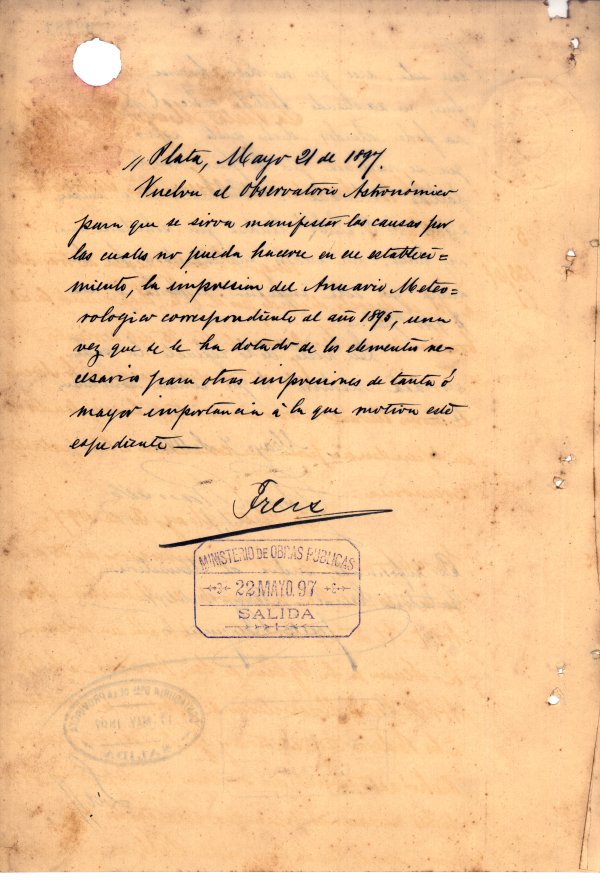 " Plata, Mayo 21 de 1897.
Vuelva al Observatorio Astronómico
para que se sirva manifestar las causas por
las cuales no pueda hacerse en ese estableci=
miento, la impresion del Anuario Meteo=
rologico correspondiente al año 1895, una
vez que se le ha dotado de los elementos ne-
cesarios para otras impresiones de tanta ó
mayor importancia á la que motiva este
espediente—
MINISTERIO DE OBRAS PUBLICAS
22 MAYO. 97
SALIDA
MAY 1897
SALIDA